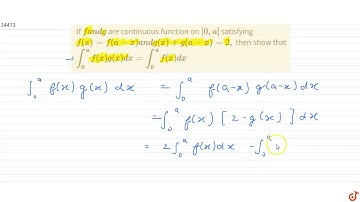 34473
If fandg are continuous function on [0, a] satisfying
f(x) = f(a − x)andg(x) + g(a − x) = 2, then show that
→ ∫₀ᵃ f(x)g(x)dx = ∫₀ᵃ f(x)dx
∫₀ᵃ f(x) g(x) dx = ∫₀ᵃ f(a-x) g(a-x) dx
= ∫₀ᵃ f(x) [ 2 - g(x) ] dx
= 2 ∫₀ᵃ f(x) dx - ∫₀ᵃ